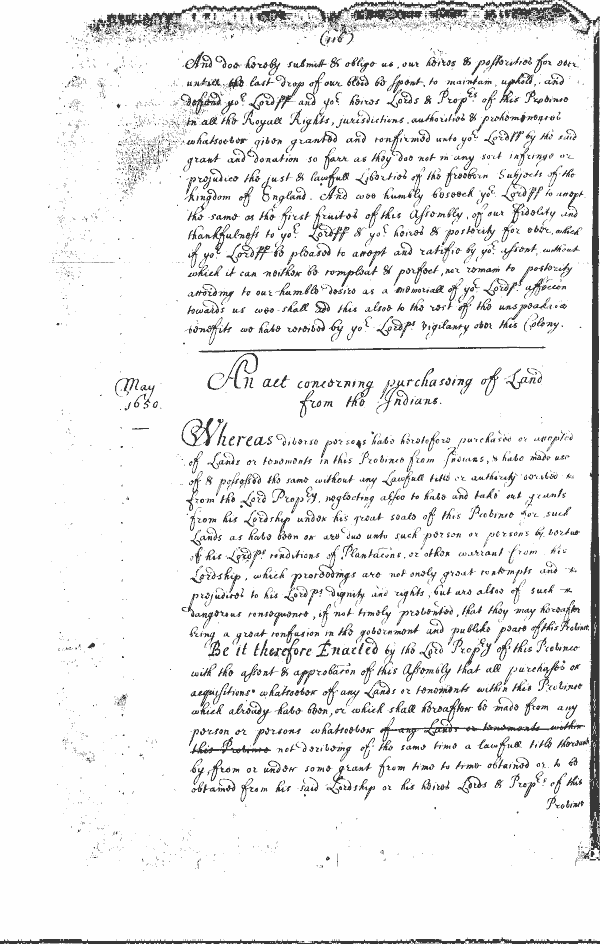 (116)
And doe hereby submit & oblige us, our heires & posterities for ever
untill the last drop of our blood be spent, to maintain uphold, and
defend yoʳ Lordpp and yoʳ heires Lords & Propʳˢ of this Province
in all the Royall Rights, jurisdictions, authorities & preheminences
whatsoever given granted and confirmed unto yoʳ Lordpp by the said
grant and donation so farr as they doe not in any sort infringe or
prejudice the just & lawfull Liberties of the freeborn Subjects of the
kingdom of England. And wee humbly beseech yoʳ Lordpp to accept
the same as the first fruites of this Assembly, of our fidelity and
thankfulness to yoʳ Lordpp & yoʳ heires & posterity for ever, which
if yoʳ Lordpp be pleased to accept and ratifie by yoʳ assent, without
which it can neither be compleat & perfect, nor remain to posterity
according to our humble desire as a memoriall of yoʳ Lordpˢ affection
towards us wee shall add this alsoe to the rest of the unspeakable
benefits we have received by yoʳ Lordpˢ vigilancy over this Colony.
May
1650
An act concerning purchasing of Land
from the Indians.
Whereas diverse persons have heretofore purchased or accepted
of Lands or tenements in this Province from Indians, & have made use
of & possessed the same without any Lawfull title or authority derived
from the Lord Propʳʸ, neglecting alsoe to have and take out grants
from his Lordship under his great seale of this Province for such
Lands as have been or are due unto such person or persons by vertue
of his Lordpˢ conditions of Plantacons, or other warrant from his
Lordship, which proceedings are not onely great contempts and
prejudices to his Lordpˢ dignity and rights, but are alsoe of such
dangerous consequence, if not timely prevented, that they may hereafter
bring a great confusion in the government and publike peace of this Province.
Be it therefore Enacted by the Lord Propʳʸ of this Province
with the assent & approbacon of this Assembly that all purchases or
acquisitions whatsoever of any Lands or tenements within this Province
which already have been, or which shall hereafter be made from any
person or persons whatsoever of any Lands or tenements within
this Province not deriving of the same time a lawfull title thereunto
by, from or under some grant from time to time obtained or to be
obtained from his said Lordship or his heires Lords & Propʳˢ of this
Province